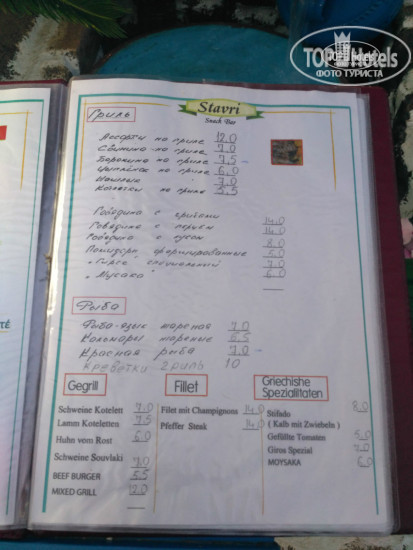 TOP Hotels
ФОТО ТУРИСТА
Stavri
Snack Bar
Гриль
Ассорти на гриле 12.0
Свинина на гриле 7.0
Баранина на гриле 7,5
Цыплёнок на гриле 6.0
7.0
Котлеты на гриле 5.5
Говядина с грибами 14.0
Говядина с перцем 14.0
Говядина с луком 8.0
Помидоры фаршированные 5.0
"Гирос" специальный 7.0
"Мусака" 6.0
Рыба
Рыба-язык жареная 7.0
Кальмары жареные 6.5
Красная рыба 7.0
Креветки гриль 10
Gegrill
Schweine Kotelett 7.0
Lamm Koteletten 7.5
Huhn vom Rost 6.0
Schweine Souvlaki 7.0
BEEF BURGER 5.5
MIXED GRILL 12.0
Fillet
Filet mit Champignons 14.0
Pfeffer Steak 14.0
Griechishe
Spezialitaten
Stifado 8.0
( Kalb mit Zwiebeln )
Gefüllte Tomaten 5.0
Giros Spezial 7.0
MOYSAKA 6.0